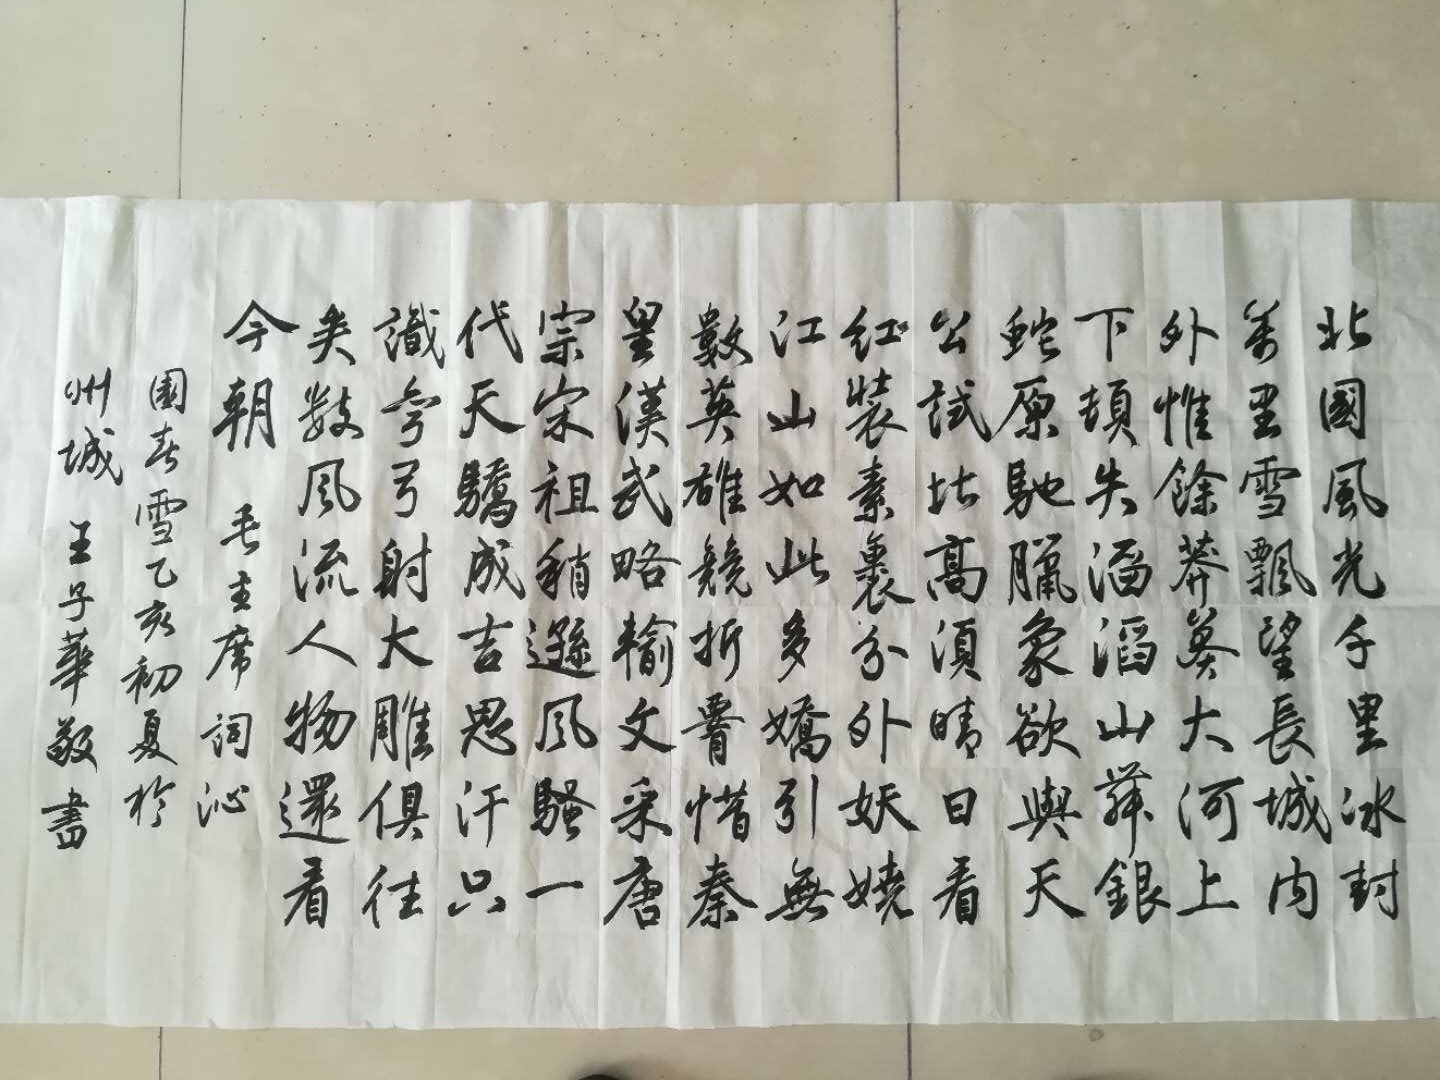 北國風光千里冰封
萬里雪飄望長城内
外惟餘莽莽大河上
下頓失滔滔山舞銀
蛇原馳臘象欲與天
公試比高須晴日看
紅裝素裹分外妖嬈
江山如此多嬌引無
數英雄競折腰惜秦
皇漢武略輸文采唐
宗宋祖稍遜风騷一
代天驕成吉思汗只
識弯弓射大雕俱往
矣数风流人物還看
今朝 毛主席詞沁
園春雪乙亥初夏於
州城 王子華敬書